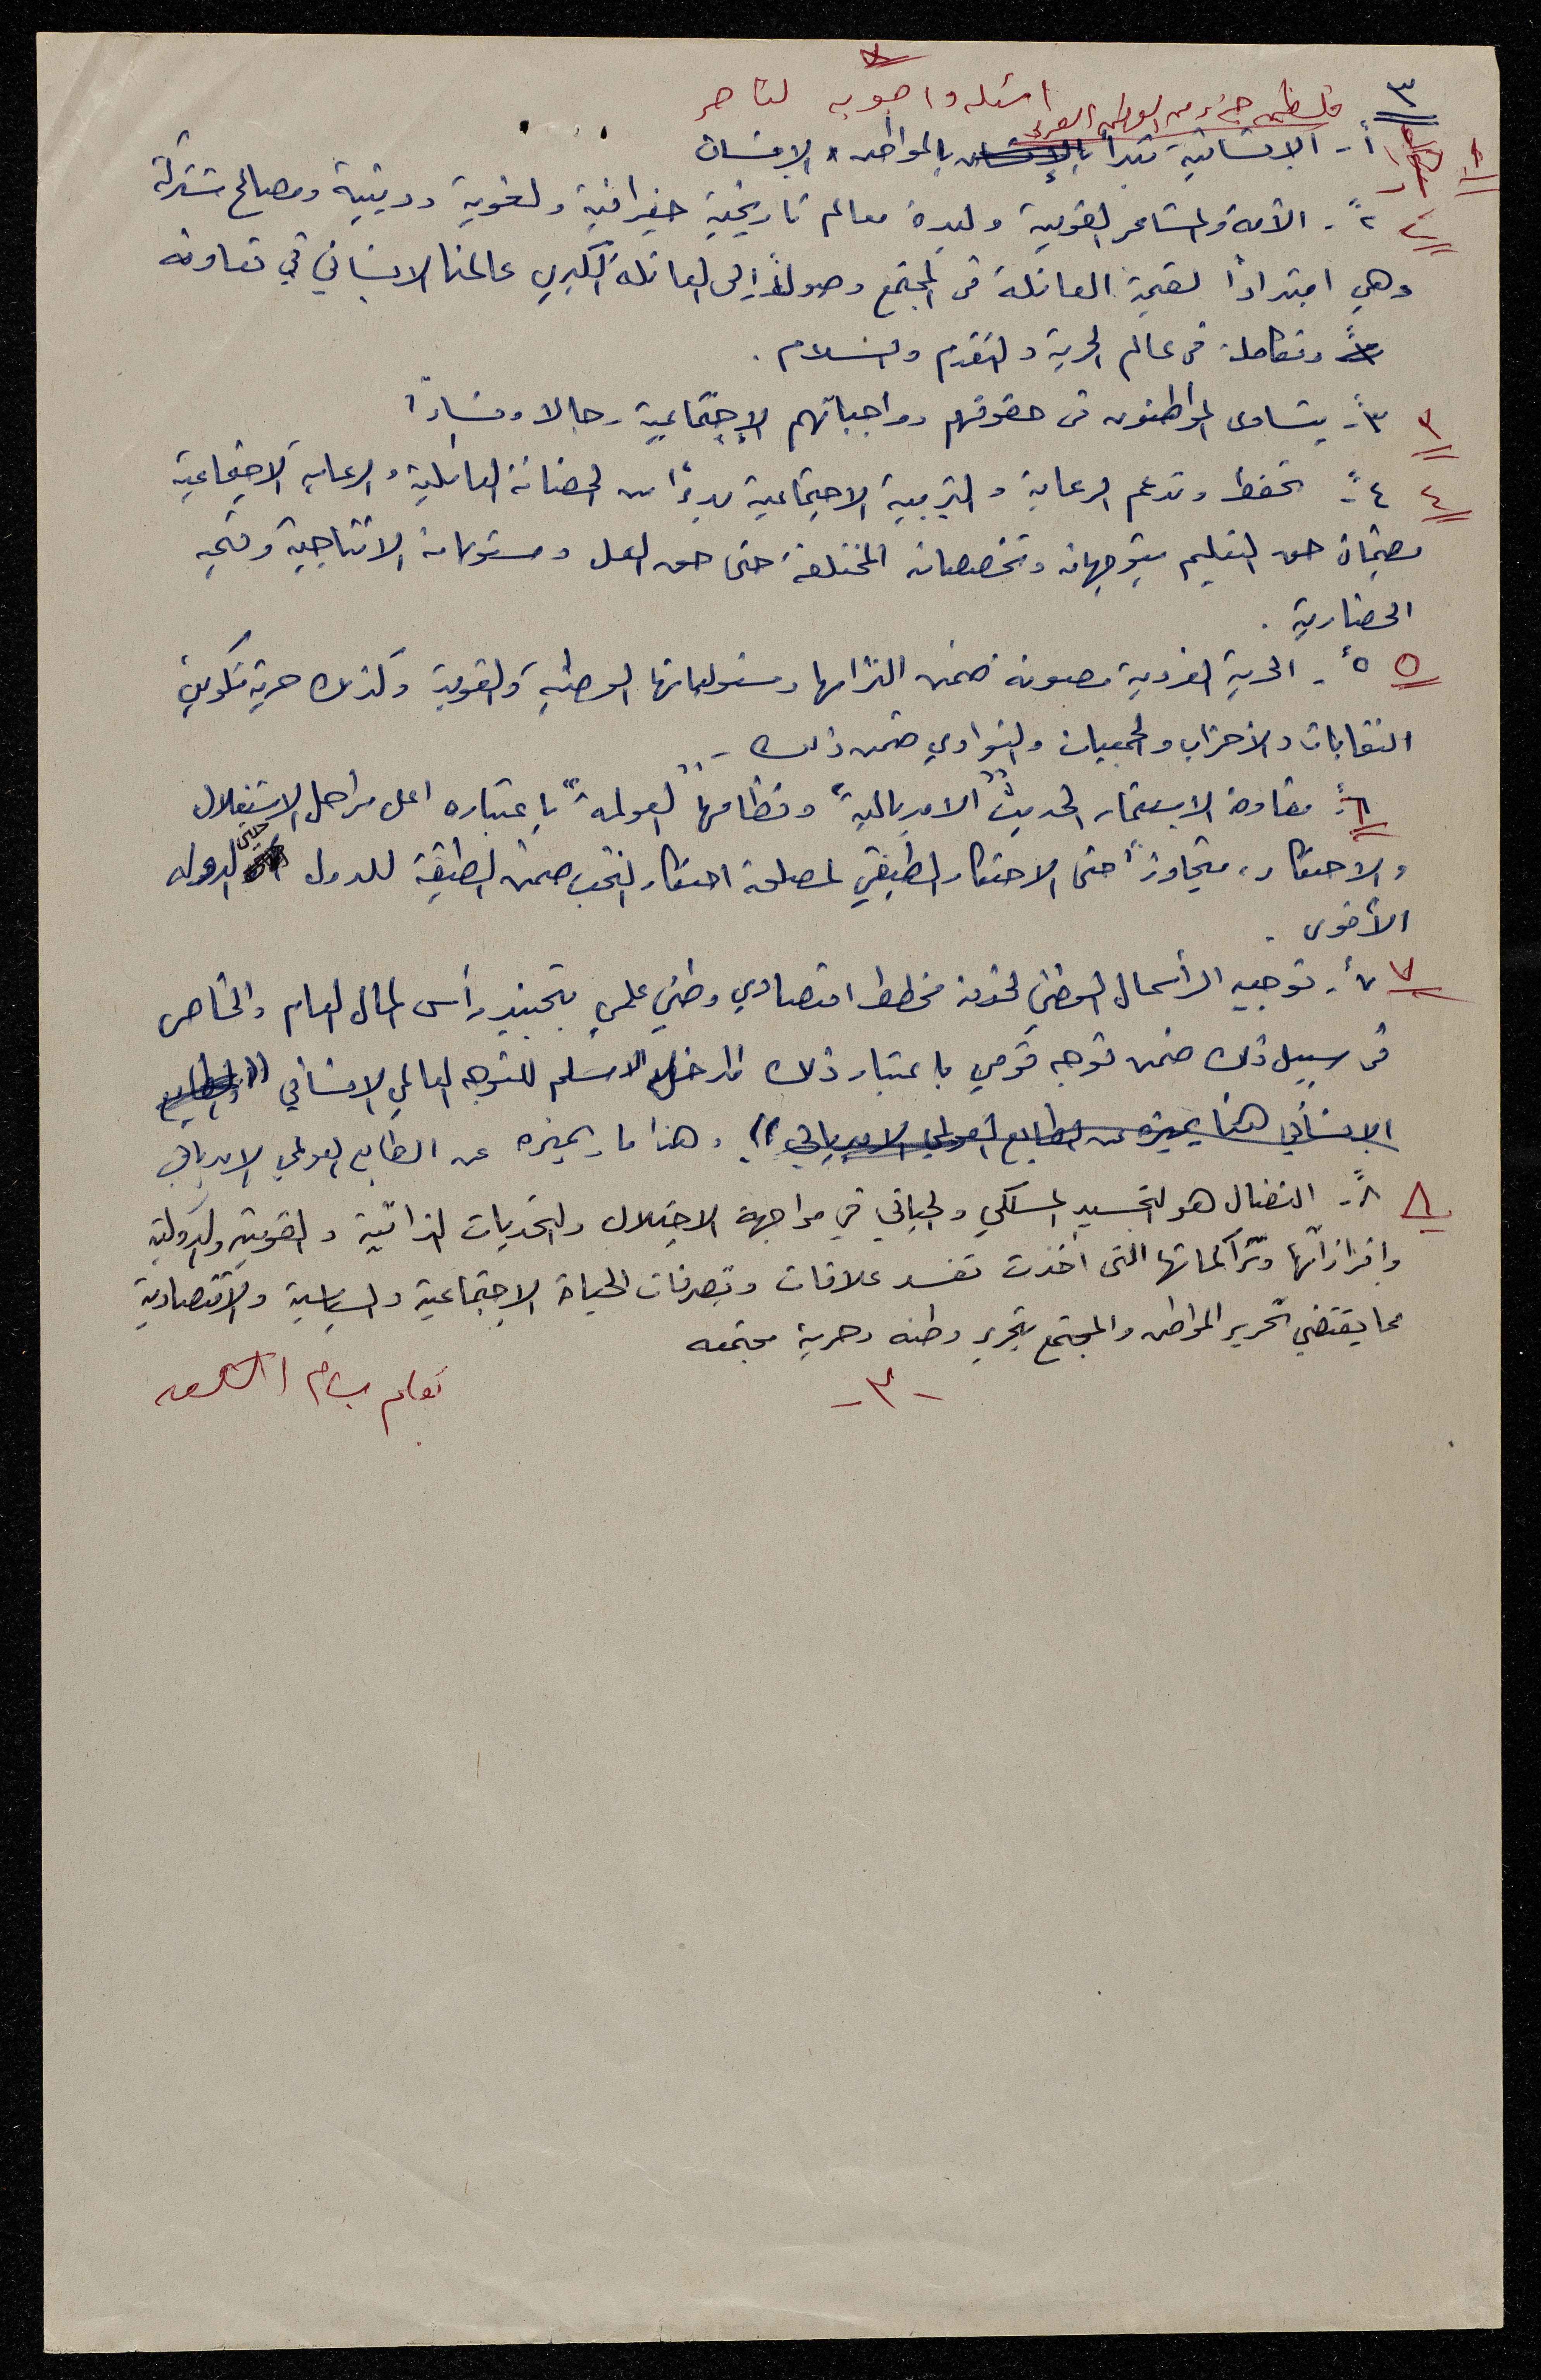 ٧
٣
اسئله واجوبه لناصر
فلسطين جزء من الوطن العربي
١ ١ً- الإنسانية تبدأ بالإنسان بالمواطن الإنسان
٢ ٢ً- الأمة والمشاعر القومية وليدة معالم تاريخية جغرافية ولغوية ودينية ومصالح مشتركة
وهي امتداداً لقيمة العائلة في المجتمع وصولاً إلى العائلة الكبرى عالمنا الانساني في تعاونه
وتكامله في عالم الحرية والتقدم والسلام .
٣ ٣ً- يتساوى المواطنون في حقوقهم وواجباتهم الإجتماعية رجالا ونساءً
٤ ٤ً- تحفظ وتدعم الرعاية والتربية الاجتماعية بدءًا من الحضانة العائلية والرعاية الاجتماعية
وضمان حق التعليم بتوجهاته وتخصصاته المختلفة حتى حق العمل ومستوياته الانتاجية وقيمه
الحضارية .
٥ ٥ً- الحرية الفردية مصونة ضمن التزامها ومسئولياتها الوطنية والقومية وكذلك حرية تكوين
النقابات والأحزاب والجمعيات والنوادي ضمن ذلك -
٦ً- مقاومة الاستعمار الحديث "الامبريالية" ونظامها "العولمة" باعتباره اعلى مراحل الاستغلال
والاحتكار، متجاوزاً حتى الاحتكار الطبقي لمصلحة احتكار النخب ضمن الطبقة للدول حتى الدولة
الأقوى .
٧ ٧ً- توجيه الرأسمال الوطني لخدمة مخطط اقتصادي وطني علمي بتجنيد رأس المال العام والخاص
في سبيل ذلك ضمن توجه قومي باعتبار ذلك المدخل الاسلم للتوجه العالمي الانساني ((والطابع
الإنساني هذا يميزه عن الطابع العولمي الامبريالي)) . وهذا ما يميزه عن الطابع العولمي الامبريالي
٨ ٨ً- النضال هو التجسيد المسلكي والحياتي في مواجهة الاحتلال والتحديات الذاتية والقومية والدولية
وإفرازاتها وتراكماتها التي أخذت تفسد علاقات وتصرفات الحياة الإجتماعية والسياسية والاقتصادية
مما يقتضي تحرير المواطن والمجتمع بتحرير وطنه وحرية مجتمعه
-٣-
بقلم بسام الشكعه